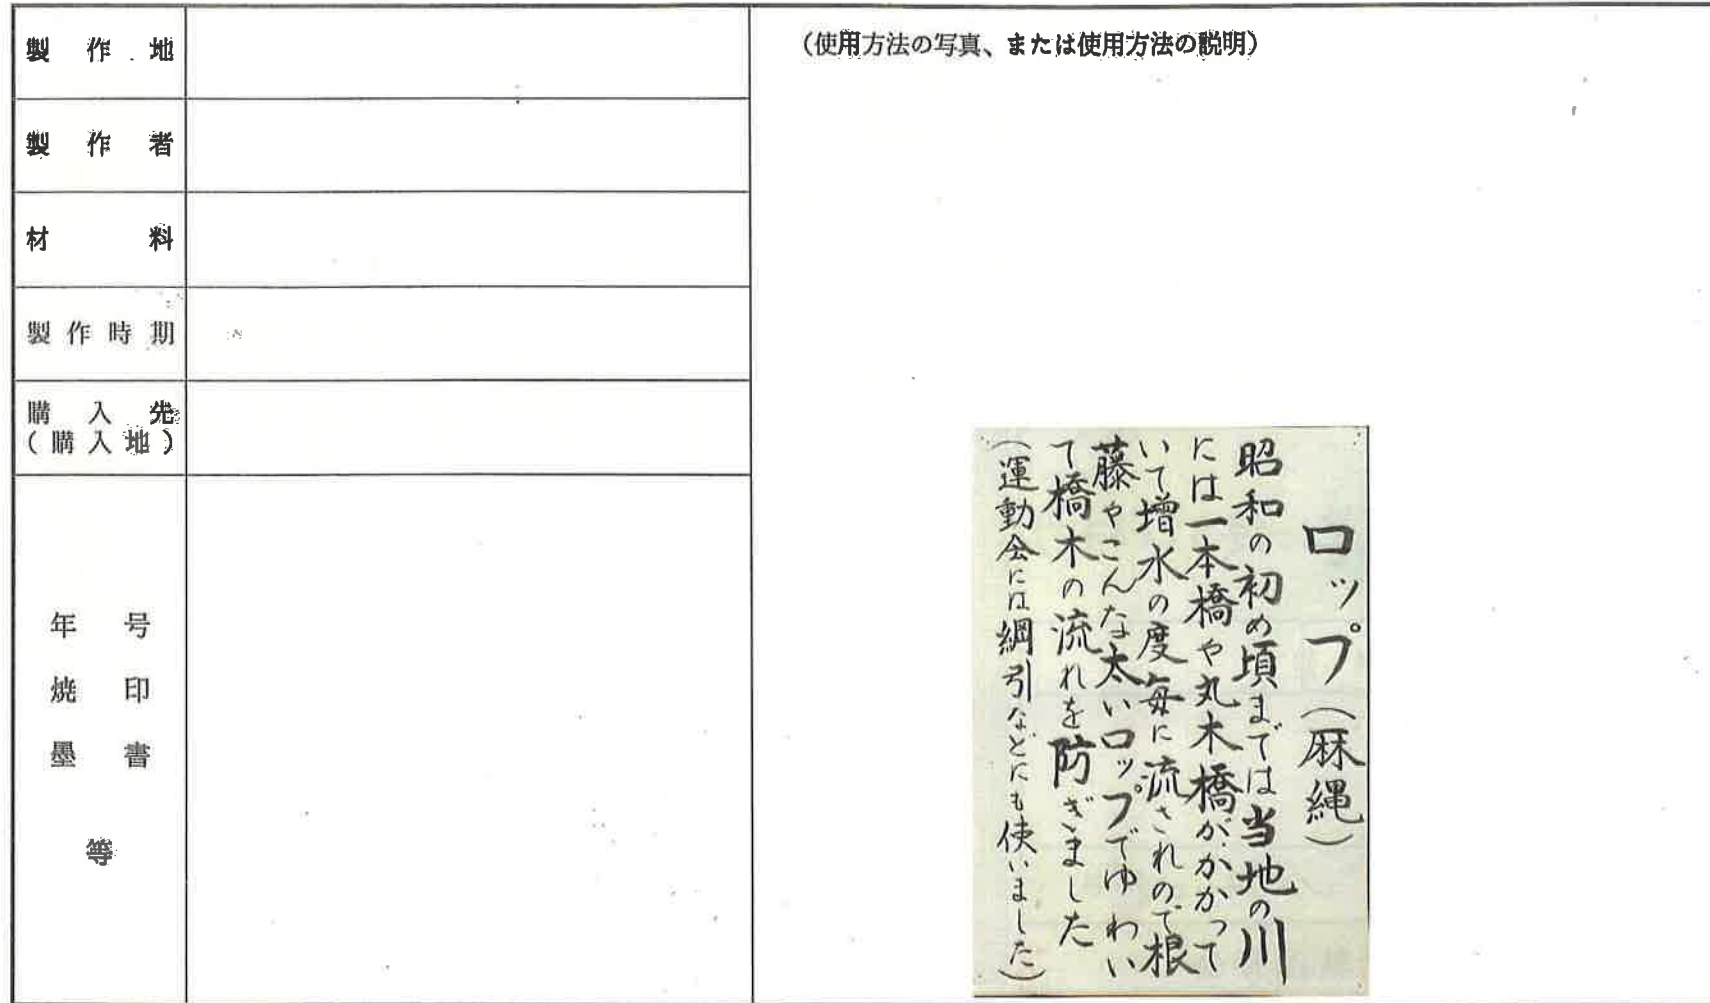 製作地
製作者
材料
製作時期
購入先
(購入地)
年号
焼印
墨書
等
(使用方法の写真、または使用方法の説明)
ロップ(麻縄)
昭和の初め頃までは当地の川
には一本橋や丸木橋がかかって
いて増水の度毎に流されので根
藤やこんな太いロップでゆわい
て橋木の流れを防ぎました
(運動会には綱引などにも使いました)